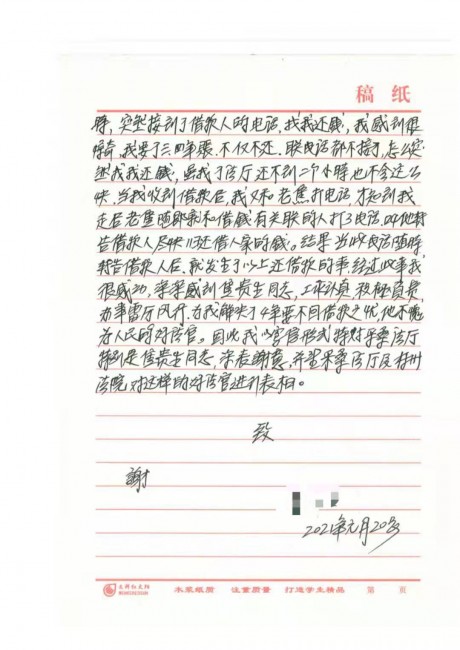 稿 纸
時，突然接到了借款人的电话，找我还钱，我感到很
奇，我要了三四年账，不仅不还，联电话都不接了，怎么突
然找我还钱，虽找了法厅还不到二个小時也不会这么
快，当我收到借款后，我又和老焦打电话，才知到我
走后老焦随即就和借钱有关联的人打了电话，叫他转
告借款人尽快儿还借人家的钱。结果当收电话随時
转告借款人后，就发生了以上还借款的事，经过此事我
很感动，深深感到焦贵生同志，工作认真，积极负责，
办事雷厉风行，为我解决了4年要不回借款之忧，他不愧
为人民的好法官。因此我以書信形式特对采桑法厅
特别是焦贵生同志，深表謝意，并望采桑法厅及林州
法院对这样的好法官进行表相。
致
謝
2021年元月20号
木浆纸质 注重质量 打造学生精品 第 页